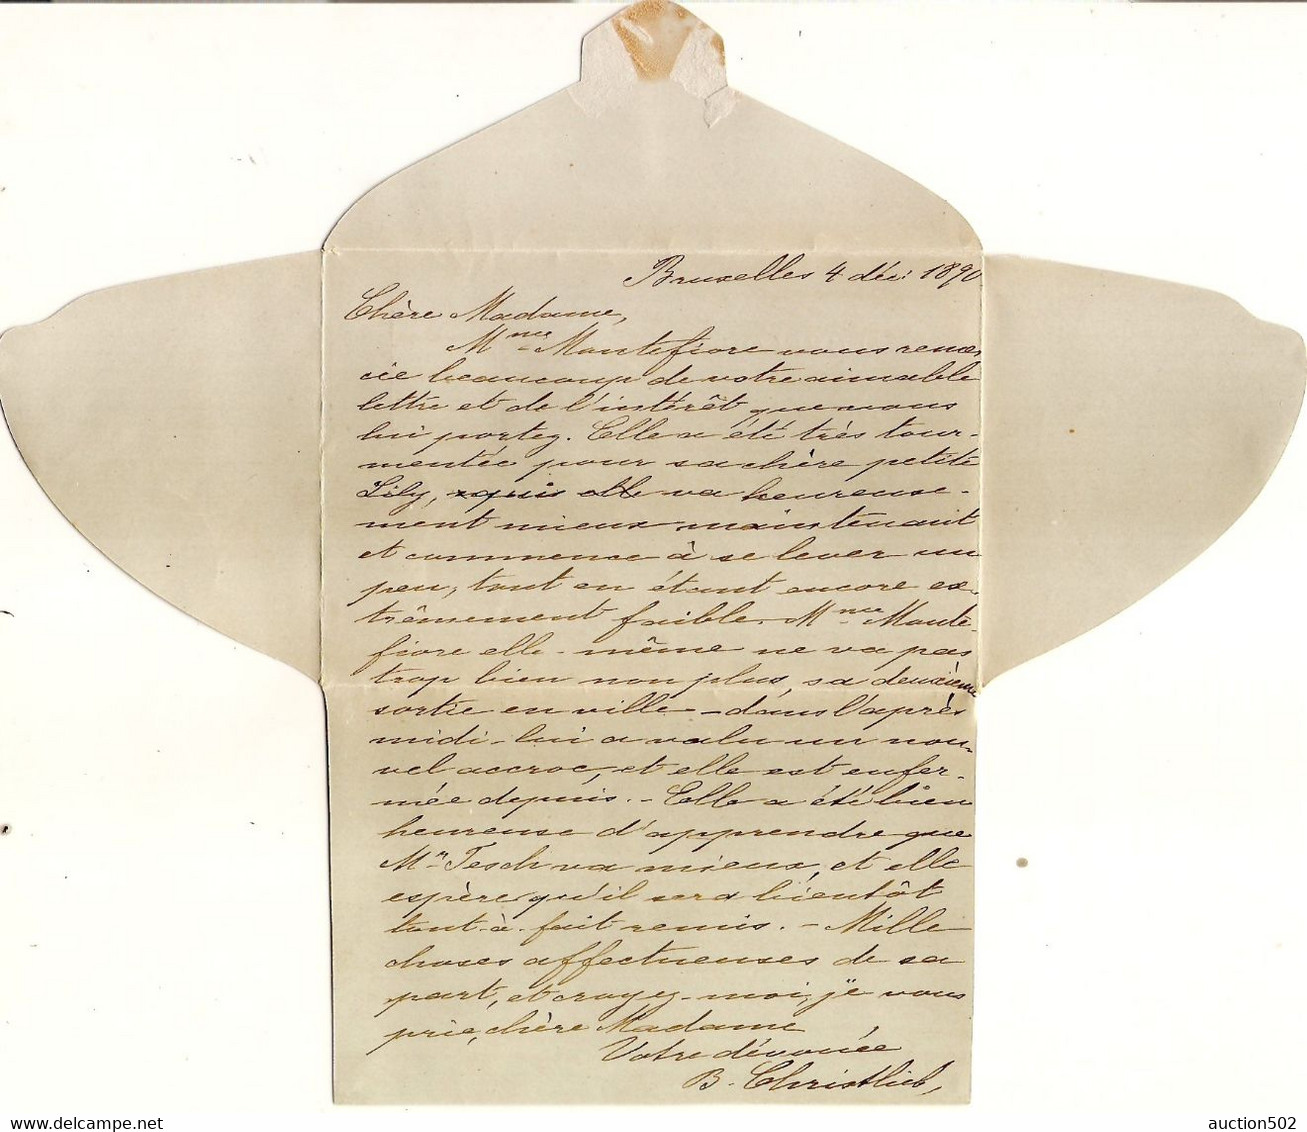 Bruxelles 4 déc. 1890
Chère Madame,
Mme Montefiore vous remer-
cie beaucoup de votre aimable
lettre et de l'intérêt que vous
lui portez. Elle a été très tour-
mentée pour sa chère petite
Lily, qui va heureuse-
ment mieux maintenant
et commence à se lever un
peu, tout en étant encore ex-
trêmement faible. Mme Monte-
fiore elle-même ne va pas
trop bien non plus, sa deuxième
sortie en ville - dans l'après
midi - lui a valu un nou-
vel accroc, et elle est enfer-
mée depuis. - Elle a été bien
heureuse d'apprendre que
Mr Tesch va mieux, et elle
espère qu'il sera bientôt
tout-à-fait remis. - Mille
choses affectueuses de sa
part, et croyez-moi, je vous
prie, chère Madame
Votre dévouée
B. Christlieb,
auction502